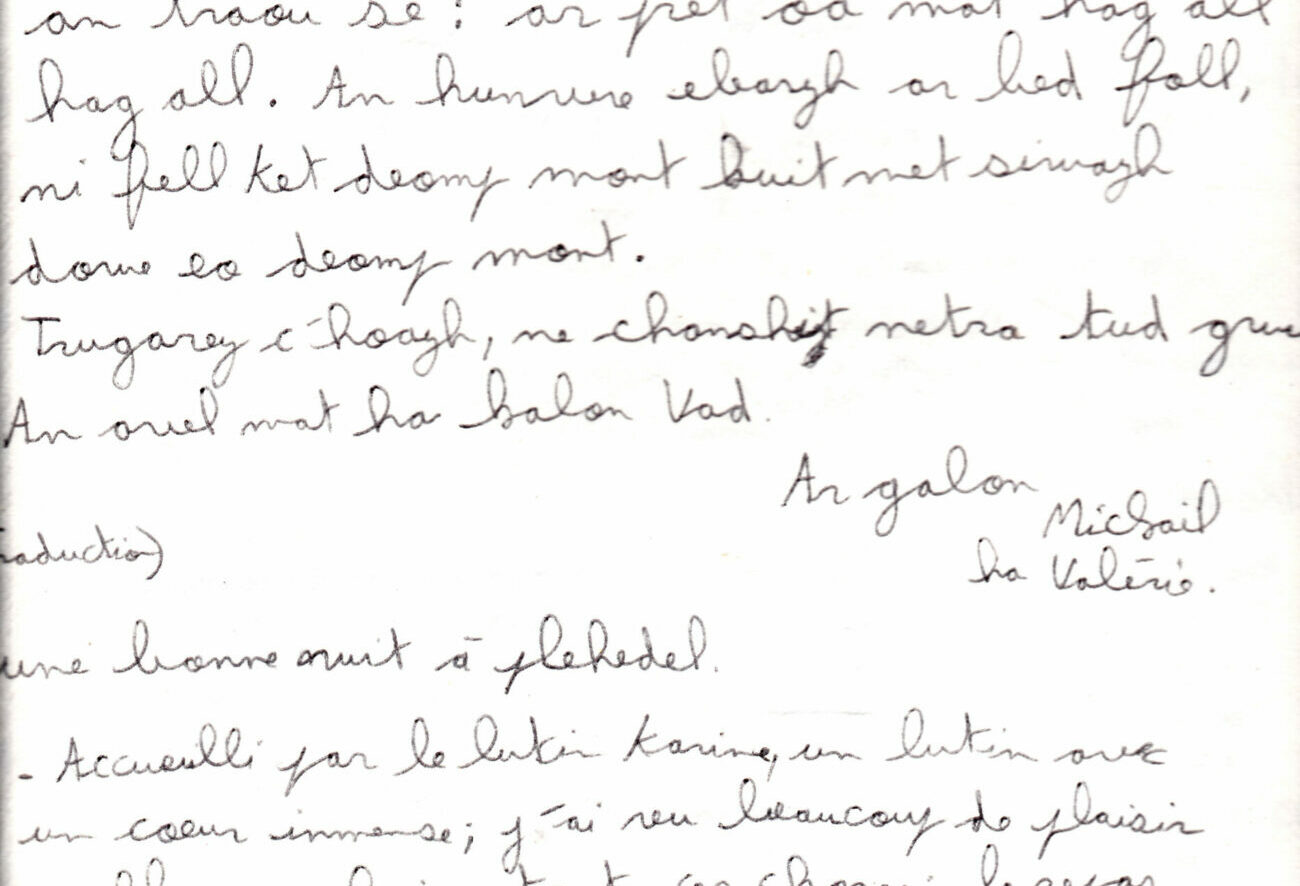 an traou se : ar pred oa mat hag all
hag all. An hunvre ebarzh ar bed fall,
ni fell ket deomp mont kuit met siwazh
dorue eo deomp mont.
Trugarez c'hoazh, ne chanshit netra tud
An avel mat ha kalon vad.
Ar galon
Mickail
ha Valérie.
raduction)
une bonne nuit à plehedel.
- Accueilli par le lutin Karine, un lutin avec
un coeur immense; j'ai reu beaucoup de plaisir